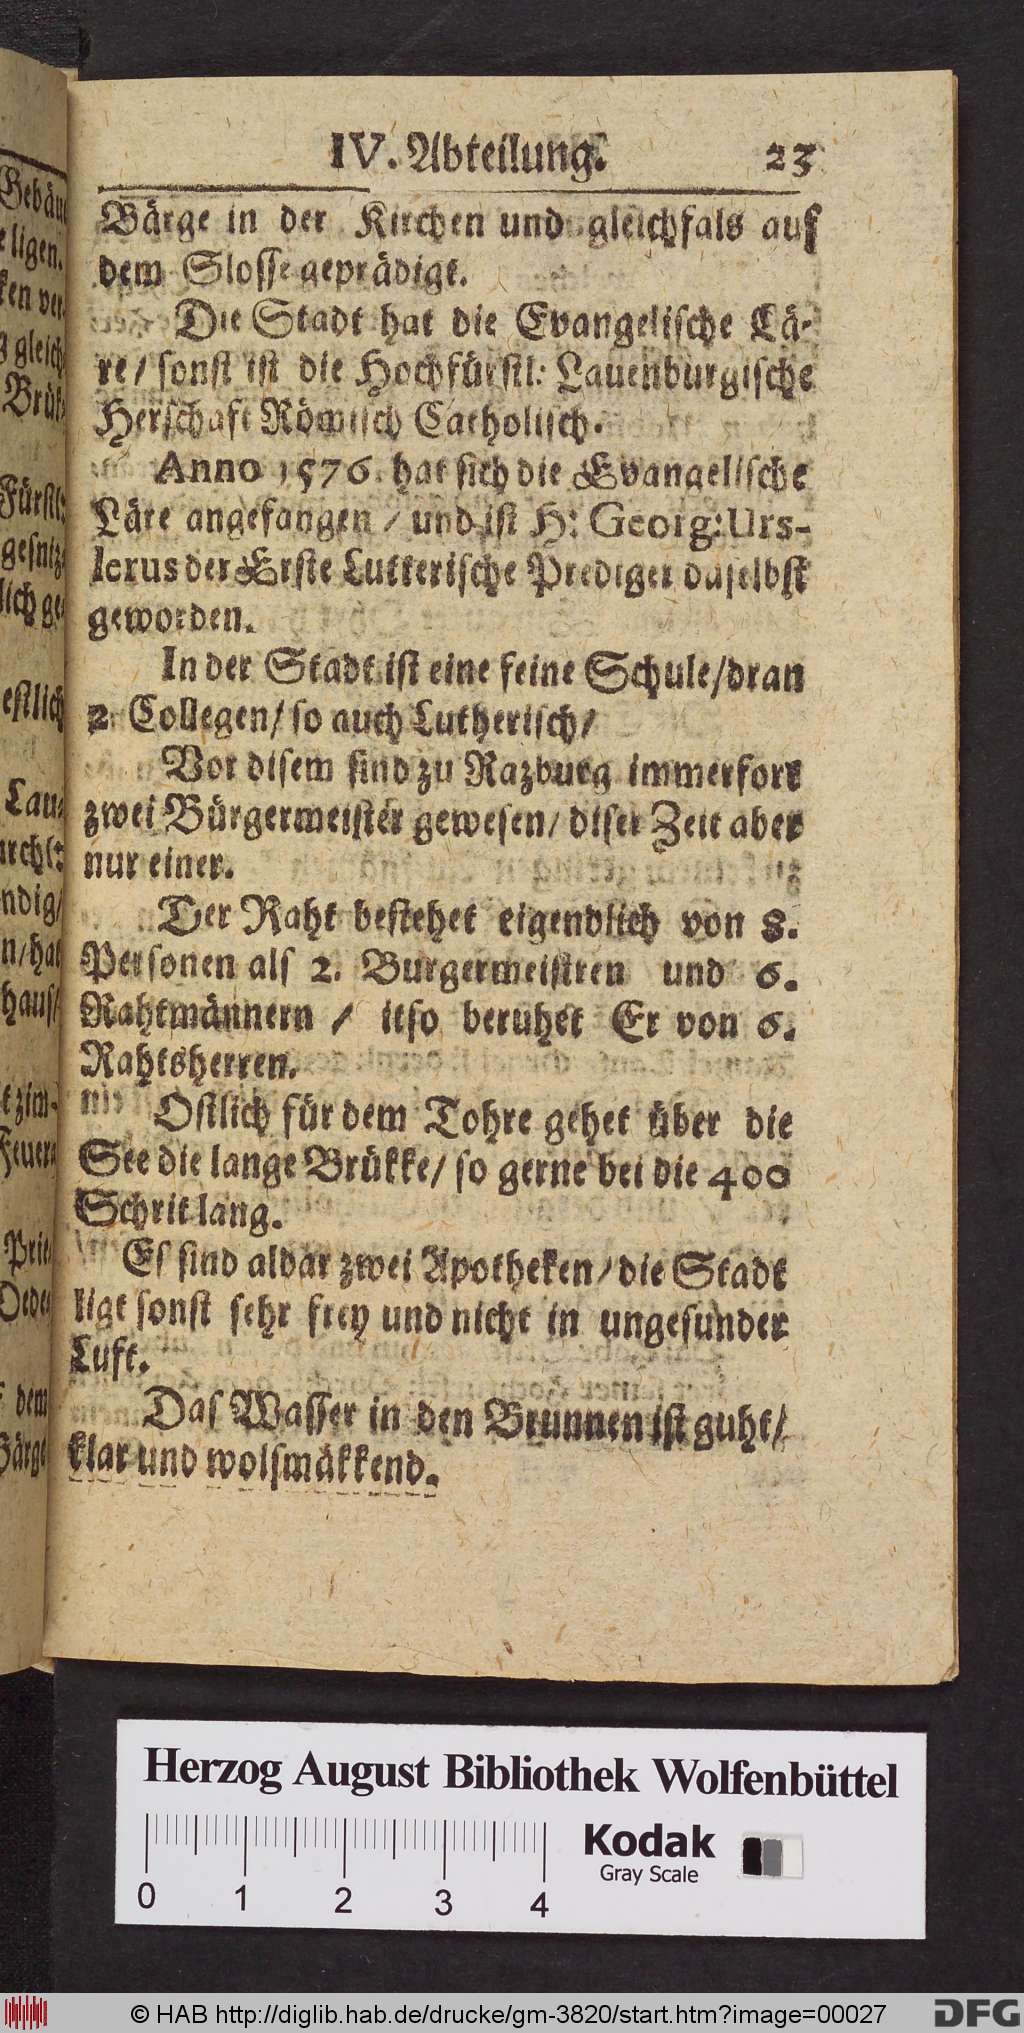 IV. Abteilung. 23
Bärge in der Kirchen und gleichfals auf
dem Slosse geprädigt.
Die Stadt hat die Evangelische Lä-
re/ sonst ist die Hochfürstl: Lauenburgische
Herschaft Römisch Catholisch.
Anno 1576. hat sich die Evangelische
Läre angefangen / und ist H: Georg: Urs-
lerus der Erste Lutterische Prediger daselbst
geworden.
In der Stadt ist eine feine Schule/dran
2. Collegen/ so auch Lutherisch/
Vor disem sind zu Razburg immerfort
zwei Bürgermeister gewesen/ diser Zeit aber
nur einer.
Der Raht bestehet eigendlich von 8.
Personen als 2. Burgermeistren und 6.
Rahtmännern / itso beruhet Er von 6.
Rahtsherren.
Ostlich für dem Tohre gehet über die
See die lange Brükke/ so gerne bei die 400
Schrit lang.
Es sind aldar zwei Apotheken/die Stadt
ligt sonst sehr frey und nicht in ungesunder
Luft.
Das Wasser in den Brunnen ist guht/
klar und wolsmäkkend.
Herzog August Bibliothek Wolfenbüttel
0 1 2 3 4
Kodak
Gray Scale
© HAB http://diglib.hab.de/drucke/gm-3820/start.htm?image=00027
DFG